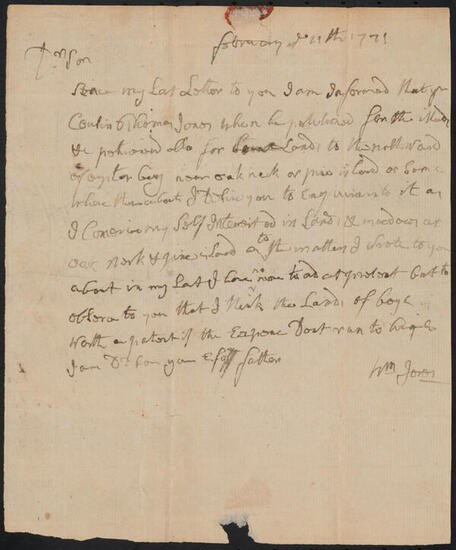 february ye 11th 1771
Dr Son
Sence my Last Letter to you I am Informed that yr
Cousin Thomas Jones when he petitioned for the
he petitioned also for Lands to the northward
of oyster bay near oak neck or pine Island or Some
where thereabouts I desire you to Enquire into it as
I Conceive my Self Interested in Lands & meadows at
oak neck & pine Island as to the matters I wrote to you
about in my Last I have now to ad at present but to
observe to you that I think the Lands of
worth a patent if the Expence Dont run to high
I am Dr Son your father
Wm Jones